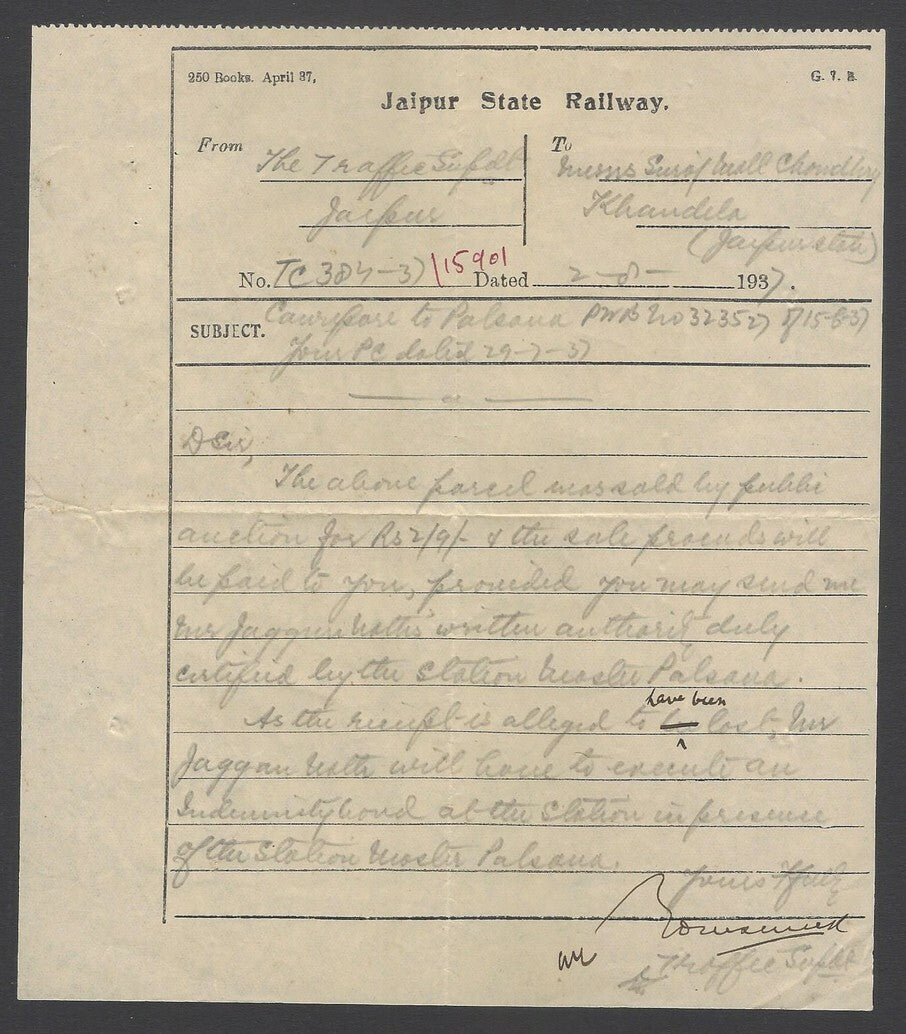 250 Books. April 37,
G. T. B.
Jaipur State Railway.
From The Traffic Supdt
Jaipur
To Messrs Suraj Mall Chowdhry
Khandela
(Jaipur state)
No. TC 384-37/15901 Dated 2-8-1937.
SUBJECT. Cawnpore to Palsana PWB No 32352
Your PC dated 29-7-37
D Sir,
The above parcel was sold by public
auction for Rs 2/9/- & the sale proceeds will
be paid to you, provided you may send me
Mr Jaggan Nath's written authority duly
certified by the Station Master Palsana.
have been
As the receipt is alleged to be lost, Mr
Jaggan Nath will have to execute an
Indemnity bond at the Station in presence
of the Station Master Palsana.
Yours ffully
Traffic Supdt